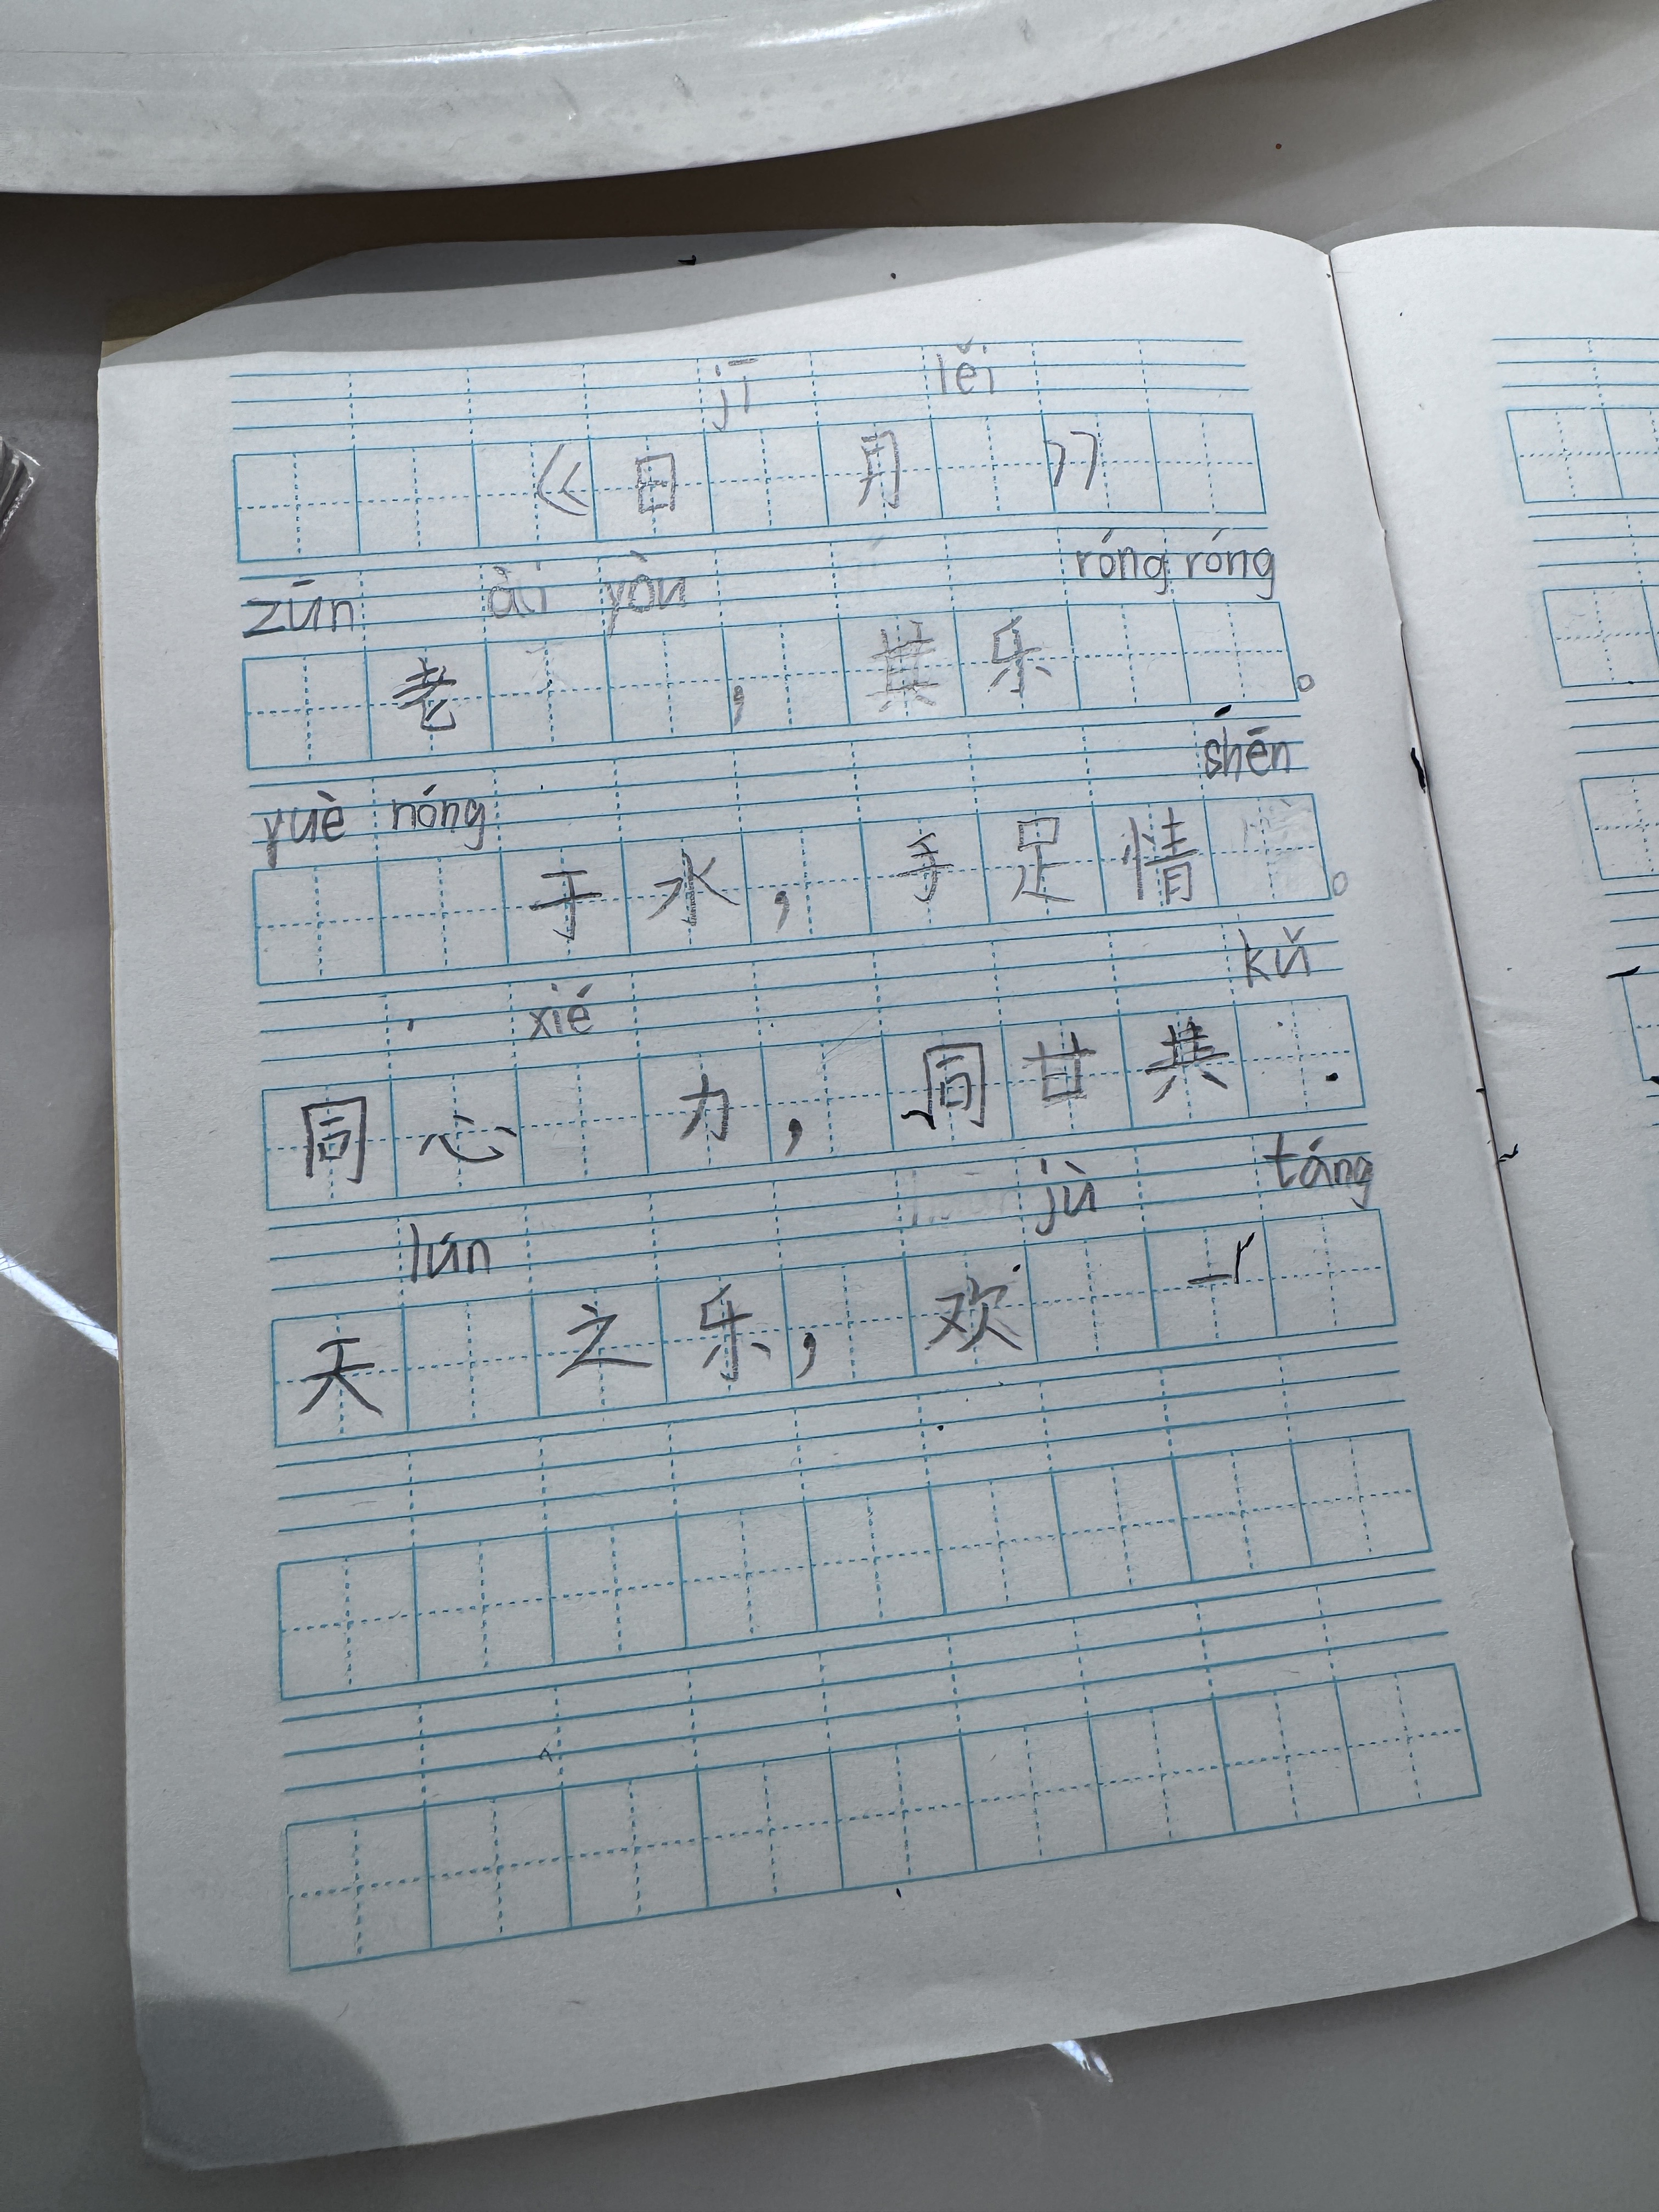 jī lěi
《日 月 》
zūn ài yòu róng róng
老 ，其乐 。
yuè nóng shēn
于水，手足情 。
xié kǔ
同心 力，同甘共
lún jù táng
天 之乐，欢